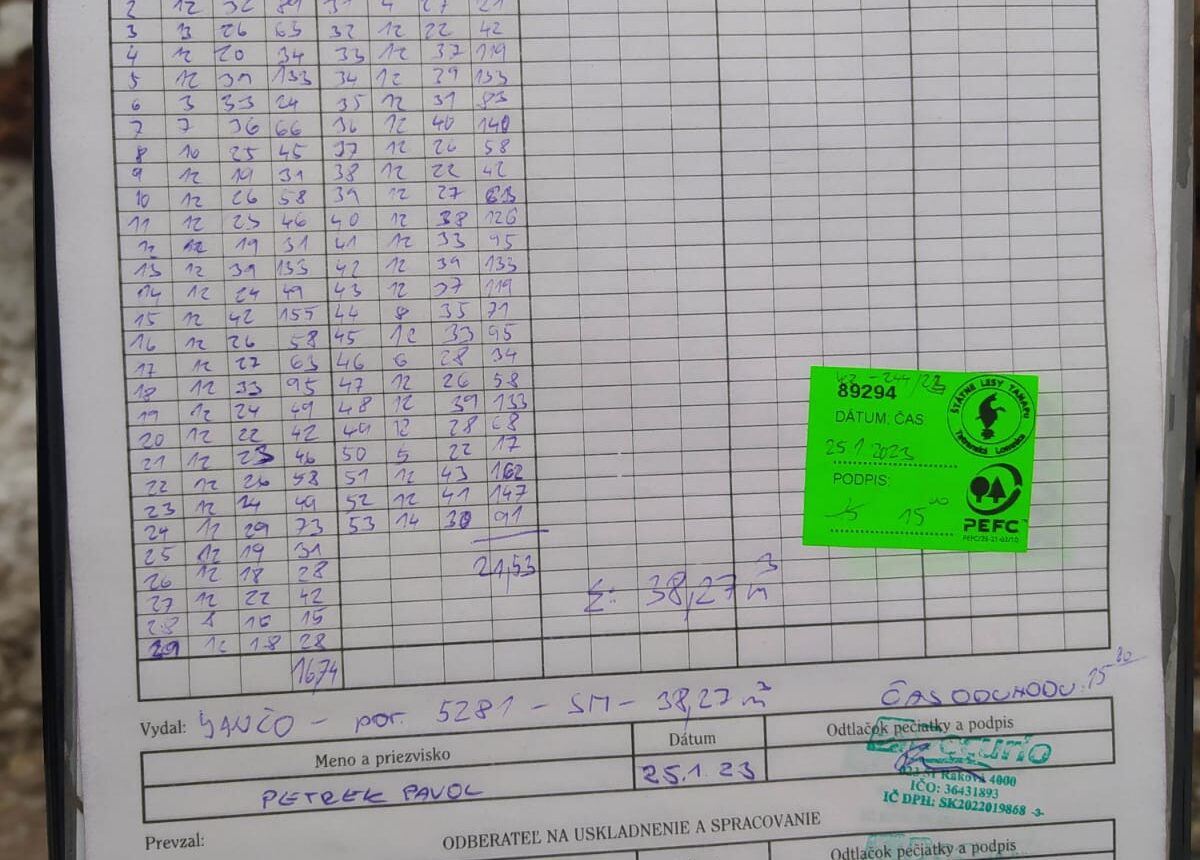 2 12 32 89 31 4 27 21
3 3 26 63 32 12 22 42
4 12 20 34 33 12 37 119
5 12 39 133 34 12 39 133
6 3 33 24 35 12 31 83
7 7 36 66 36 12 40 140
8 10 25 45 37 12 26 58
9 12 19 31 38 12 22 42
10 12 26 58 39 12 27 63
11 12 23 46 40 12 38 126
12 12 19 31 41 12 33 95
13 12 39 133 42 12 39 133
14 12 24 49 43 12 37 119
15 12 42 155 44 8 35 71
16 12 26 58 45 12 33 95
17 12 27 63 46 6 28 34
18 12 33 95 47 12 26 58
19 12 24 49 48 12 39 133
20 12 22 42 49 12 28 68
21 12 23 46 50 5 22 17
22 12 26 58 51 12 43 162
23 12 24 49 52 12 41 147
24 12 29 73 53 14 30 91
25 12 19 31
26 12 18 28 21,53
27 12 22 42
28 8 16 15
29 12 18 28
1674
Σ: 38,27 m3
89294
DÁTUM, ČAS
25.1.2023
PODPIS:
15 00
ŠTÁTNE LESY TANAPU
Tatranská Lomnica
PEFC
Vydal: JANČO – por. 5281 – SM – 38,27 m3
ČAS ODCHODU: 15
Meno a priezvisko Dátum Odtlačok pečiatky a podpis
PETREK PAVOL 25.1.23
023 51 Raková 4000
IČO: 36431893
IČ DPH: SK2022019868 -3-
Prevzal: ODBERATEĽ NA USKLADNENIE A SPRACOVANIE
Odtlačok pečiatky a podpis